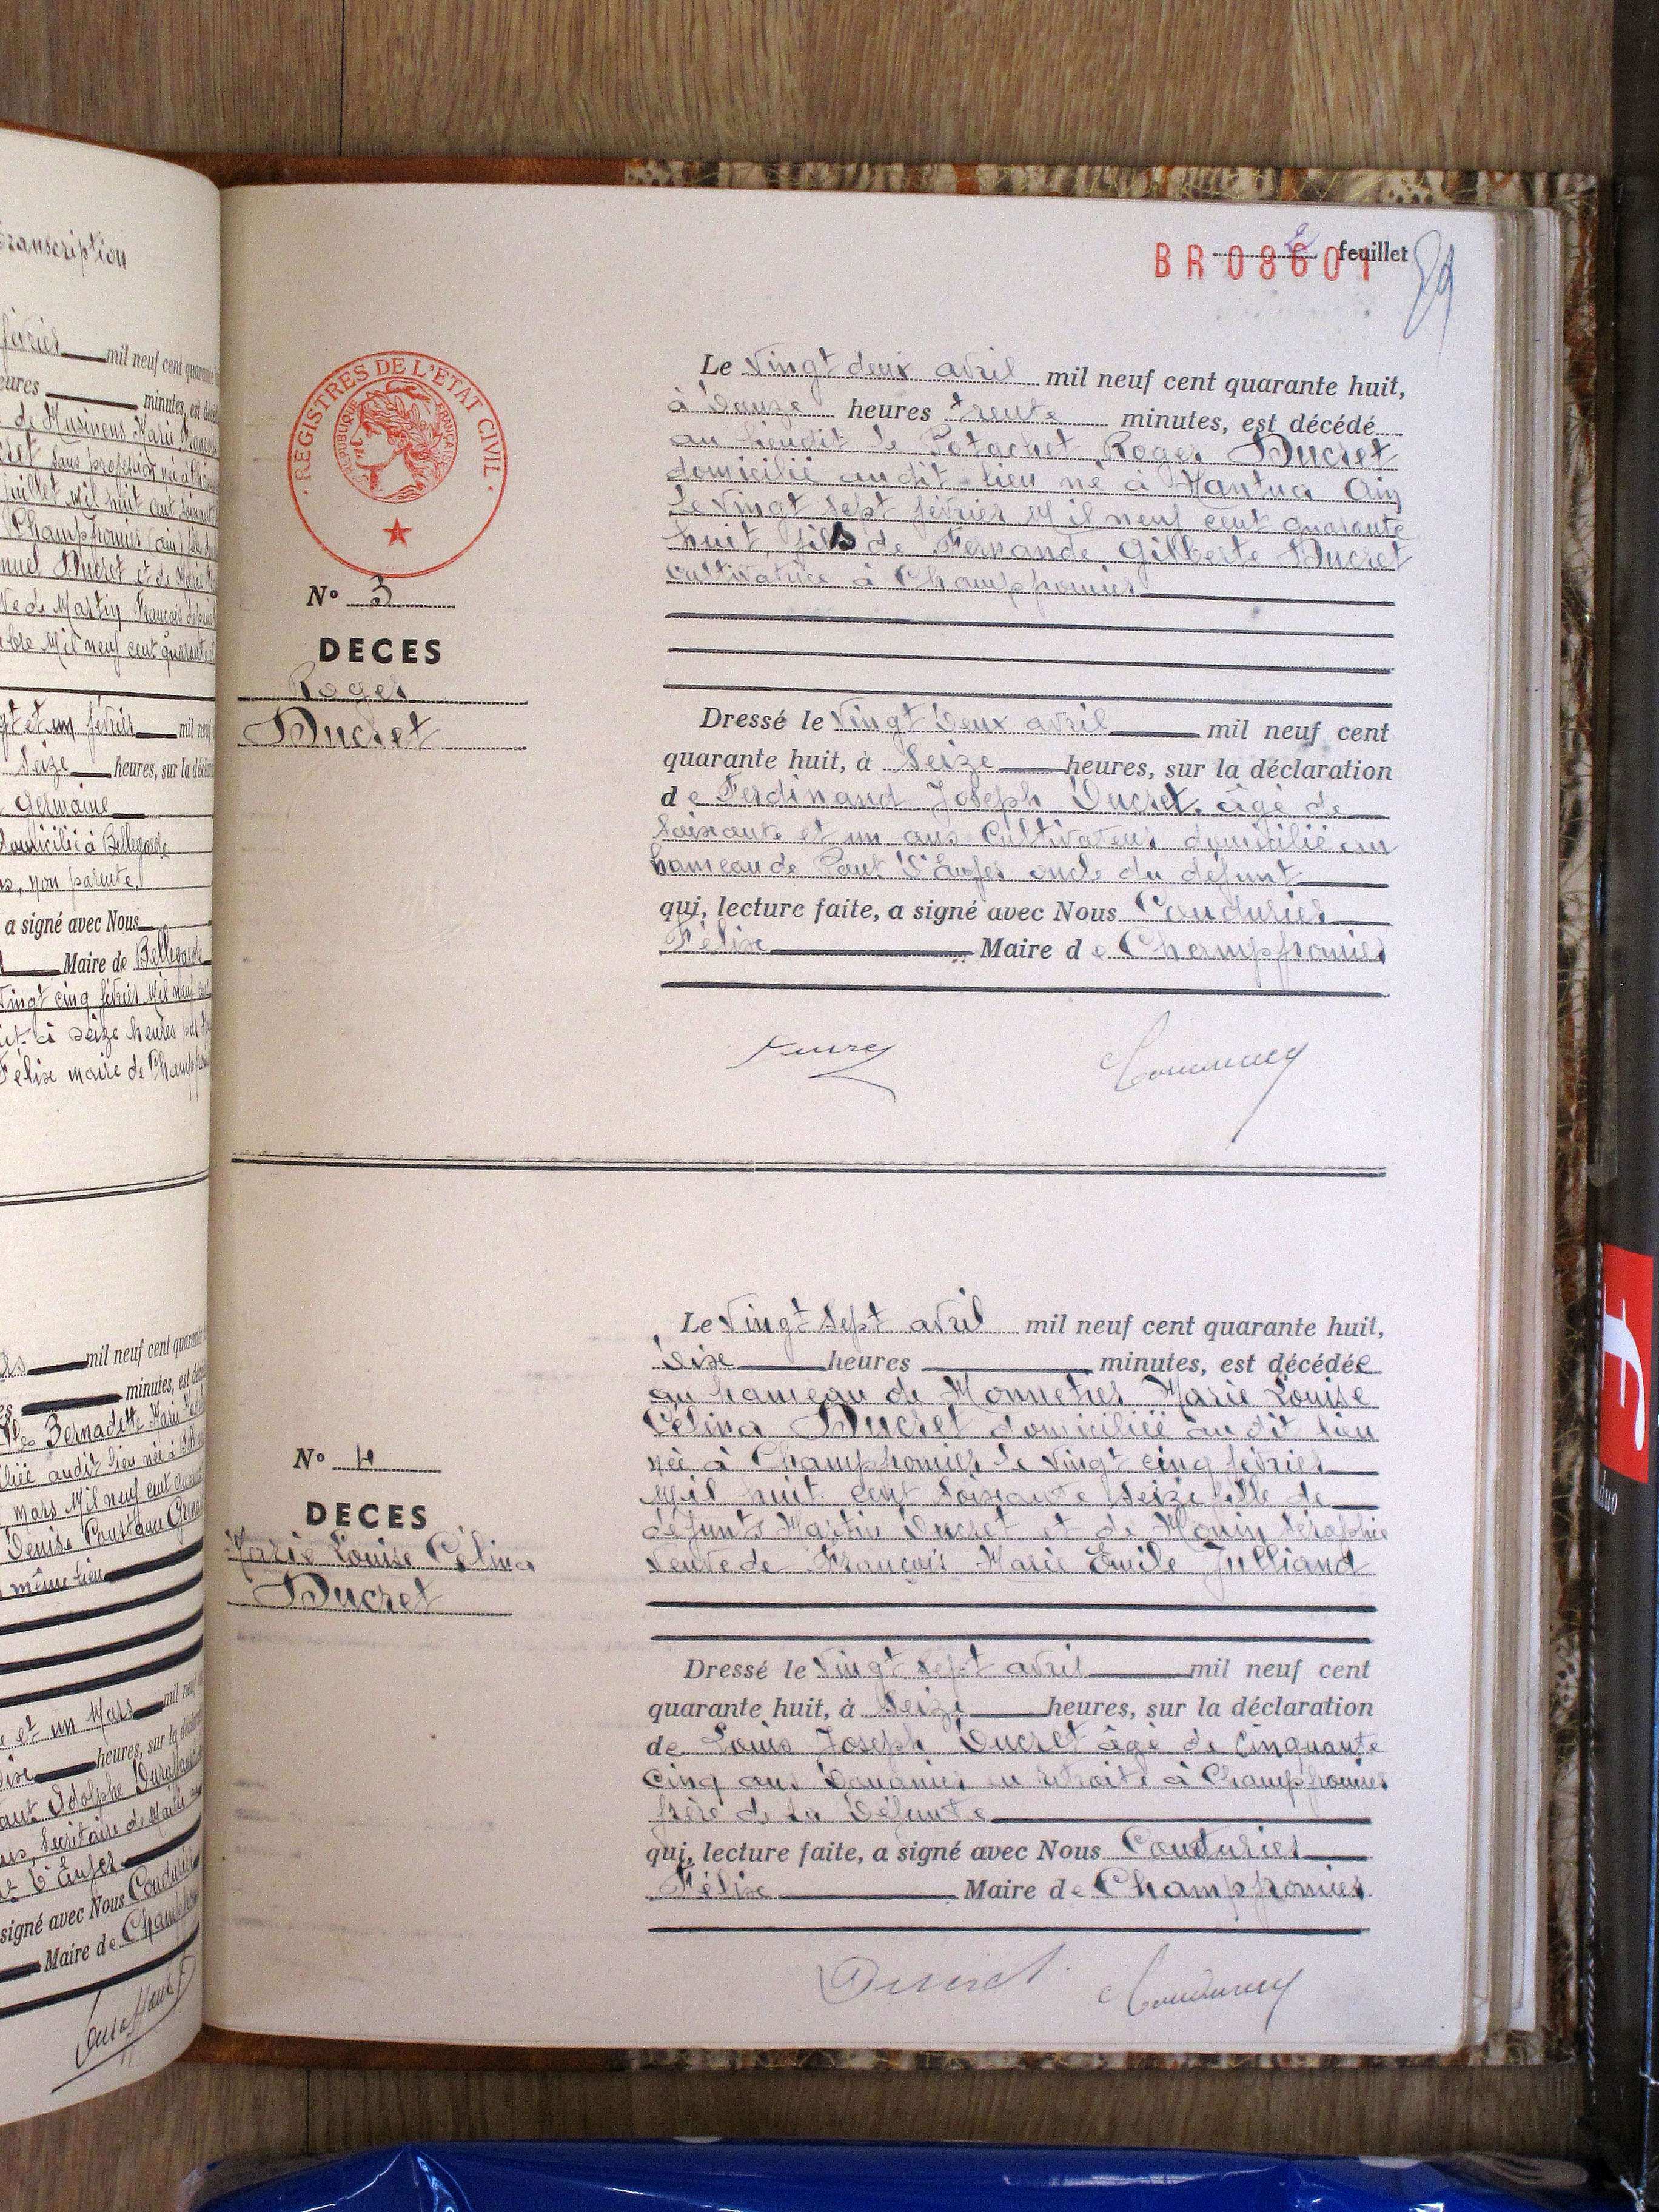 transcription
février mil neuf cent quarante
heures minutes, est
de Musinens Marie
sans profession née à
juillet Mil huit cent
Champfromier (ain)
Ducret et de
de Martin François
Mil neuf cent quarante
et un février mil neuf
Seize heures, sur la
Germaine
domicilié à Bellegarde
non parente
a signé avec Nous
Maire de Bellegarde
Vingt cinq février Mil neuf
à seize heures
Félix maire de
mil neuf cent quarante
minutes, est
Bernadette Marie
audit lieu née à
mars Mil neuf cent
Denise Constance
même lieu
et un Mars mil neuf
heures, sur la
Adolphe
Secrétaire de Mairie
D'Enfer
signé avec Nous Condurier
Maire de
BR 08601 2 feuillet
REGISTRES DE L'ÉTAT CIVIL
RÉPUBLIQUE FRANÇAISE
N° 3
DECES
Roger
Ducret
Le Vingt deux avril mil neuf cent quarante huit,
à Douze heures trente minutes, est décédé
au lieudit le Potachet Roger Ducret
domicilié audit lieu né à Nantua Ain
le Vingt sept février Mil neuf cent quarante
huit, fils de Fernande Gilberte Ducret
Cultivatrice à Champfromier
Dressé le Vingt Deux avril mil neuf cent
quarante huit, à Seize heures, sur la déclaration
de Ferdinand Joseph Ducret, âgé de
Soixante et un ans Cultivateur domicilié au
hameau de Pont D'Enfer oncle du défunt
qui, lecture faite, a signé avec Nous Condurier
Félix Maire de Champfromier
N° 4
DECES
Marie Louise Célina
Ducret
Le Vingt Sept avril mil neuf cent quarante huit,
Dix heures minutes, est décédée
au hameau de Monnetier Marie Louise
Célina Ducret domiciliée au dit lieu
née à Champfromier le Vingt cinq février
Mil huit cent Soixante Seize fille de
défunts Martin Ducret et de Séraphie
Veuve de François Marie Emile Julliand
Dressé le Vingt Sept avril mil neuf cent
quarante huit, à Seize heures, sur la déclaration
de Louis Joseph Ducret âgé de Cinquante
Cinq ans Douanier en retraite à Champfromier
frère de la Défunte
qui, lecture faite, a signé avec Nous Condurier
Félix Maire de Champfromier
Ducret